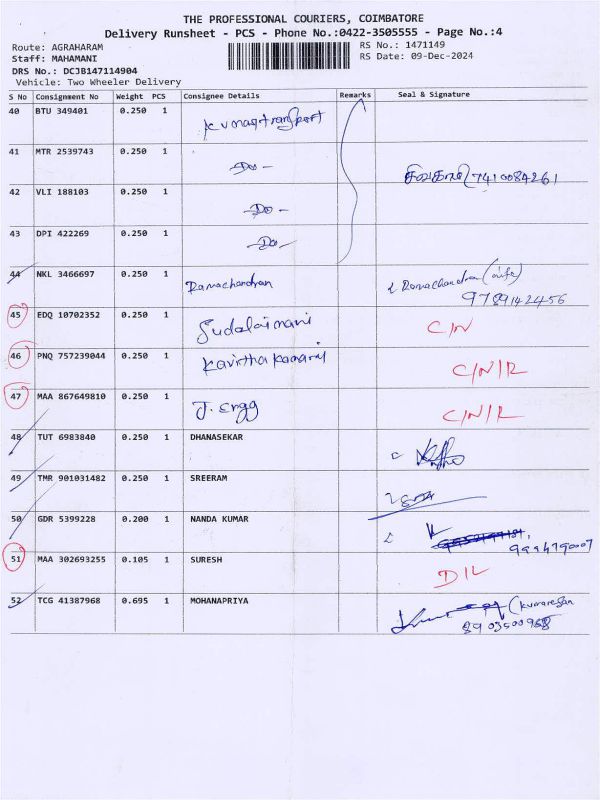 THE PROFESSIONAL COURIERS, COIMBATORE
Delivery Runsheet - PCS - Phone No.:0422-3505555 - Page No.:4
Route: AGRAHARAM RS No.: 1471149
Staff: MAHAMANI RS Date: 09-Dec-2024
DRS No.: DCJB147114904
Vehicle: Two Wheeler Delivery
S No Consignment No Weight PCS Consignee Details Remarks Seal & Signature
40 BTU 349401 0.250 1 Kumar transport
41 MTR 2539743 0.250 1 -Do- 7410084261
42 VLI 188103 0.250 1 -Do-
43 DPI 422269 0.250 1 -Do-
44 NKL 3466697 0.250 1 Ramachandran Ramachandran (wife)
9789142456
45 EDQ 10702352 0.250 1 Sudalaimani C/N
46 PNQ 757239044 0.250 1 C/N/R
47 MAA 867649810 0.250 1 J. Engg C/N/R
48 TUT 6983840 0.250 1 DHANASEKAR
49 TMR 901031482 0.250 1 SREERAM
50 GDR 5399228 0.200 1 NANDA KUMAR
51 MAA 302693255 0.105 1 SURESH D/L
52 TCG 41387968 0.695 1 MOHANAPRIYA (kumaresan
8903500968